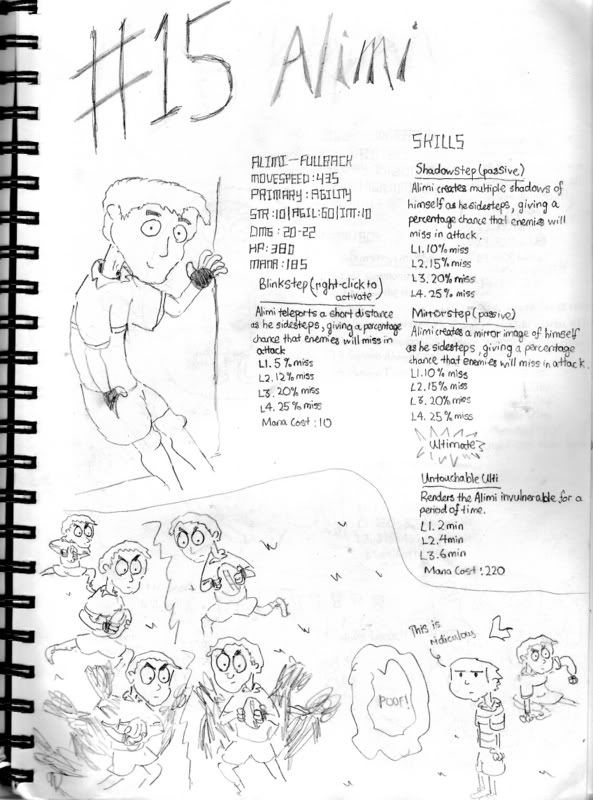 #15 Alimi
ALIMI - FULLBACK
MOVESPEED: 435
PRIMARY: AGILITY
STR: 10 | AGIL: 60 | INT: 10
DMG: 20-22
HP: 380
MANA: 185
Blinkstep (right-click to
activate)
Alimi teleports a short distance
as he sidesteps, giving a percentage
chance that enemies will miss in
attack
L1. 5% miss
L2. 12% miss
L3. 20% miss
L4. 25% miss
Mana Cost: 10
SKILLS
Shadowstep (passive)
Alimi creates multiple shadows of
himself as he sidesteps, giving a
percentage chance that enemies will
miss in attack.
L1. 10% miss
L2. 15% miss
L3. 20% miss
L4. 25% miss
Mirrorstep (passive)
Alimi creates a mirror image of himself
as he sidesteps, giving a percentage
chance that enemies will miss in attack.
L1. 10% miss
L2. 15% miss
L3. 20% miss
L4. 25% miss
Ultimate
Untouchable Ulti
Renders the Alimi invulnerable for a
period of time.
L1. 2min
L2. 4min
L3. 6min
Mana Cost: 220
This is
ridiculous
POOF!